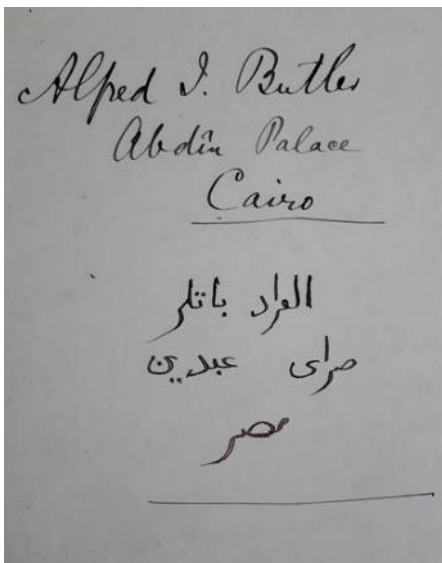 Alfred J. Butler
Abdîn Palace
Cairo
الفراد باتلر
صراى عبدين
مصر